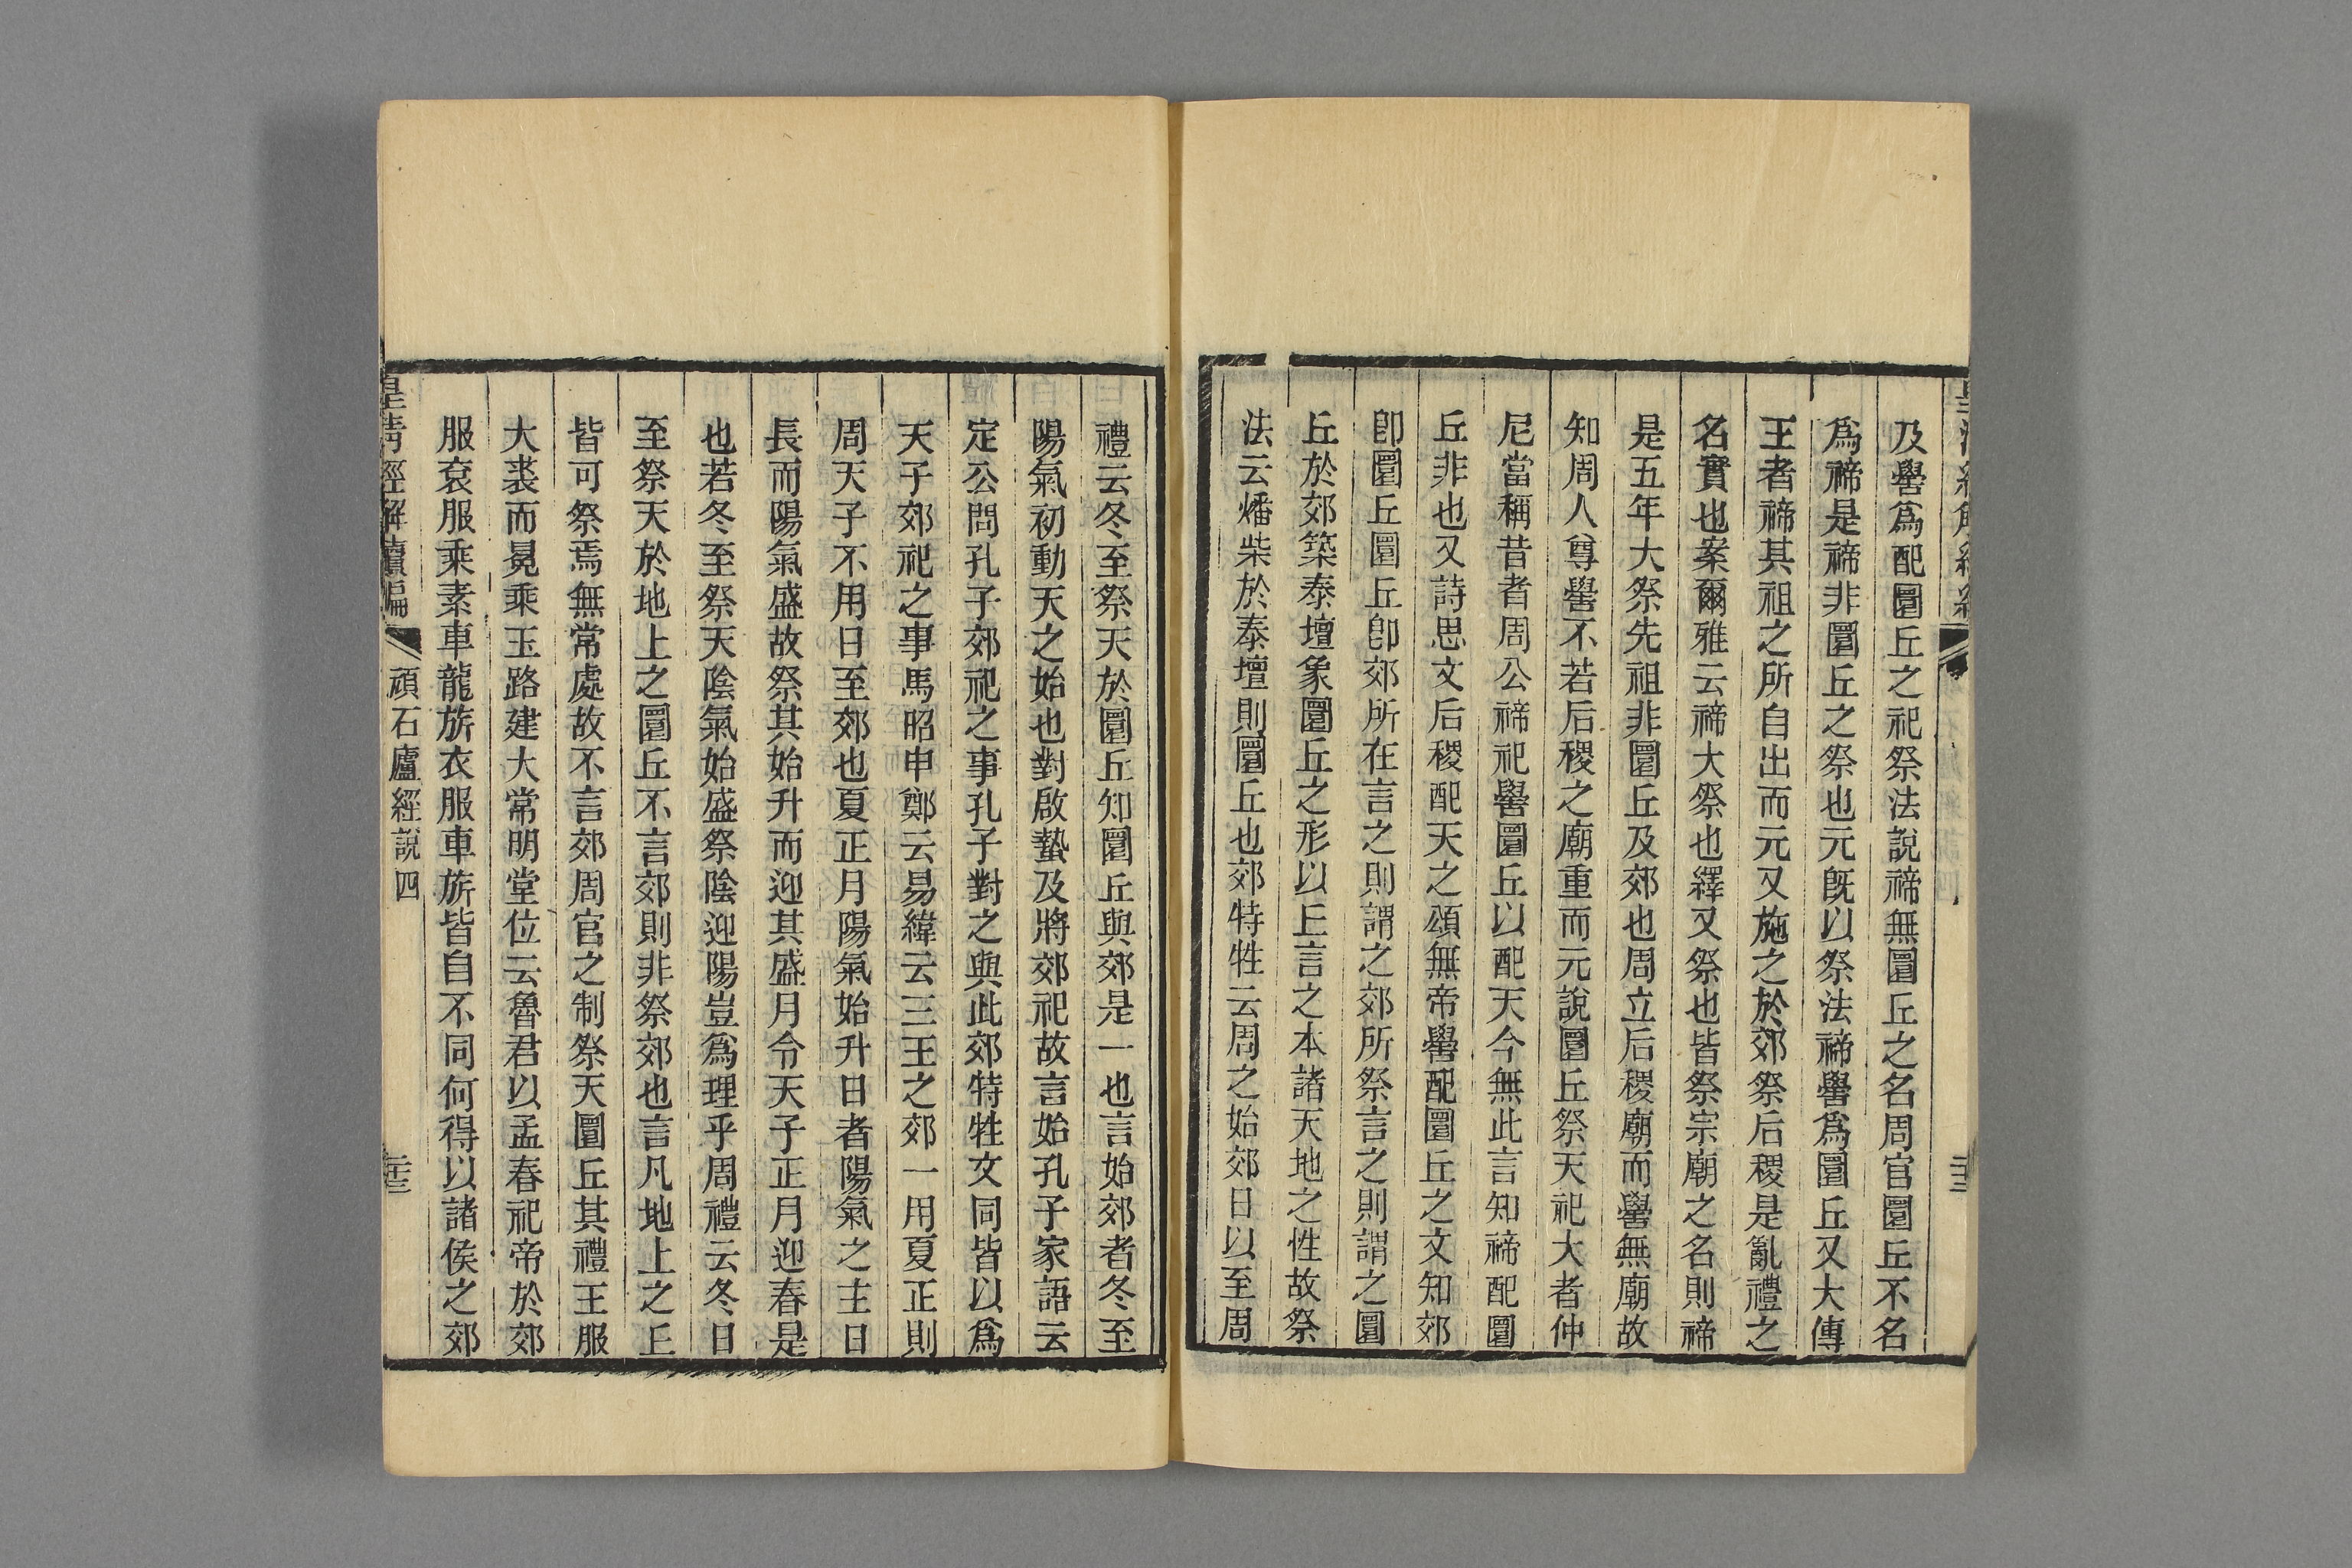 及嚳爲配圜丘之祀祭法說禘無圜丘之名周官圜丘不名
爲禘是禘非圜丘之祭也元既以祭法禘嚳爲圜丘又大傳
王者禘其祖之所自出而元又施之於郊祭后稷是亂禮之
名實也案爾雅云禘大祭也繹又祭也皆祭宗廟之名則禘
是五年大祭先祖非圜丘及郊也周立后稷廟而嚳無廟故
知周人尊嚳不若后稷之廟重而元說圜丘祭天祀大者仲
尼當稱昔者周公禘祀嚳圜丘以配天今無此言知禘配圜
丘非也又詩思文后稷配天之頌無帝嚳配圜丘之文知郊
卽圜丘圜丘卽郊所在言之則謂之郊所祭言之則謂之圜
丘於郊築泰壇象圜丘之形以丘言之本諸天地之性故祭
法云燔柴於泰壇則圜丘也郊特牲云周之始郊日以至周
禮云冬至祭天於圜丘知圜丘與郊是一也言始郊者冬至
陽氣初動天之始也對啟蟄及將郊祀故言始孔子家語云
定公問孔子郊祀之事孔子對之與此郊特牲文同皆以爲
天子郊祀之事馬昭申鄭云易緯云三王之郊一用夏正則
周天子不用日至郊也夏正月陽氣始升日者陽氣之主日
長而陽氣盛故祭其始升而迎其盛月令天子正月迎春是
也若冬至祭天陰氣始盛祭陰迎陽豈爲理乎周禮云冬日
至祭天於地上之圜丘不言郊則非祭郊也言凡地上之丘
皆可祭焉無常處故不言郊周官之制祭天圜丘其禮王服
大裘而冕乘玉路建大常明堂位云魯君以孟春祀帝於郊
服袞服乘素車龍旂衣服車旂皆自不同何得以諸侯之郊
皇清經解續編 頑石廬經說四 二十三